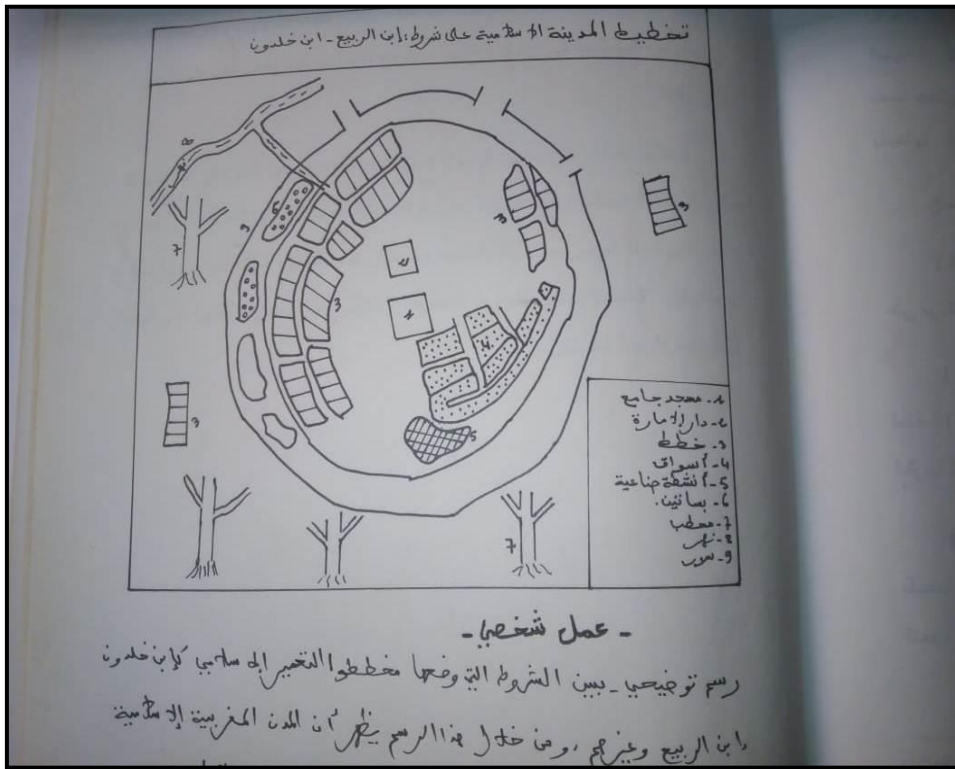 تخطيط المدينة الإسلامية على شروط: إبن الربيع - ابن خلدون
8
9
6
7
3
3
3
3
2
1
4
5
7
1- مسجد جامع
2- دار الإمارة
3- خطط
4- أسواق
5- أنشطة صناعية
6- بساتين.
7- محطب
8- نهر
9- سور
- عمل شخصي -
رسم توضيحي - يبين الشروط التي وضعها مخططوا التعمير الإسلامي كإبن خلدون
إبن الربيع وغيرهم، ومن خلال هذا الرسم يظهر أن المدن المغربية الإسلامية